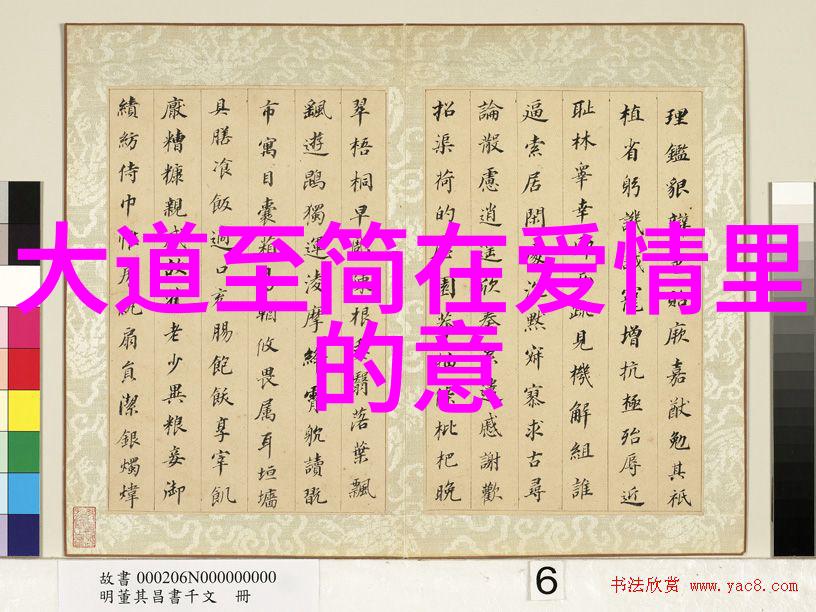 大道至简在爱情里
的意
理鑑貌貽厥嘉猷勉其祗
植省躬譏誡寵增抗極殆辱近
耻林睪幸疏見機解組誰
逼索居閑沉默寂寥求古尋
論散慮逍遥欣奏遣慼謝歡
招渠荷的園莽抽條枇杷晚
翠梧桐早陳根委翳落葉飄
飖遊鵾獨運凌摩絳霄躭讀翫
市寓目囊箱輶攸畏属耳垣墻
具膳飡飯適口充腸飽飫享宰飢
厭糟糠親戚故舊老少異粮妾御
績紡侍巾帷房紈扇員潔銀燭煒
故書 000206N000000000
明董其昌書千文 冊
6
书法欣赏 www.yac8.com